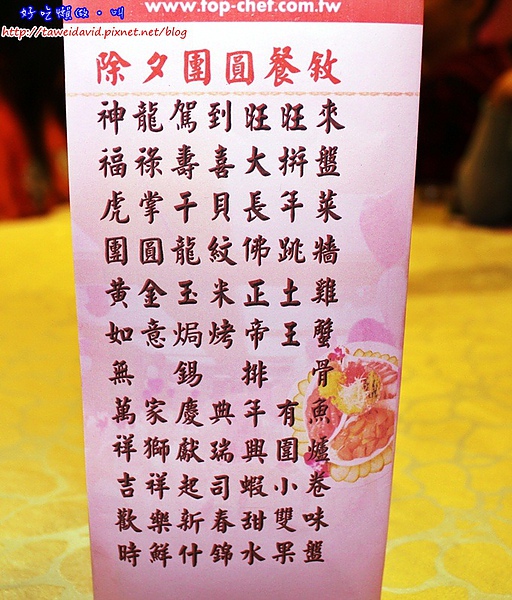 www.top-chef.com.tw
好吃懶做。叫
http://taweidavid.pixnet.net/blog
除夕團圓餐敘
神龍駕到旺旺來
福祿壽喜大拼盤
虎掌干貝長年菜
團圓龍紋佛跳牆
黃金玉米正土雞
如意焗烤帝王蟹
無錫排骨
萬家慶典年有魚
祥獅獻瑞興圍爐
吉祥起司蝦小卷
歡樂新春甜雙味
時鮮什錦水果盤